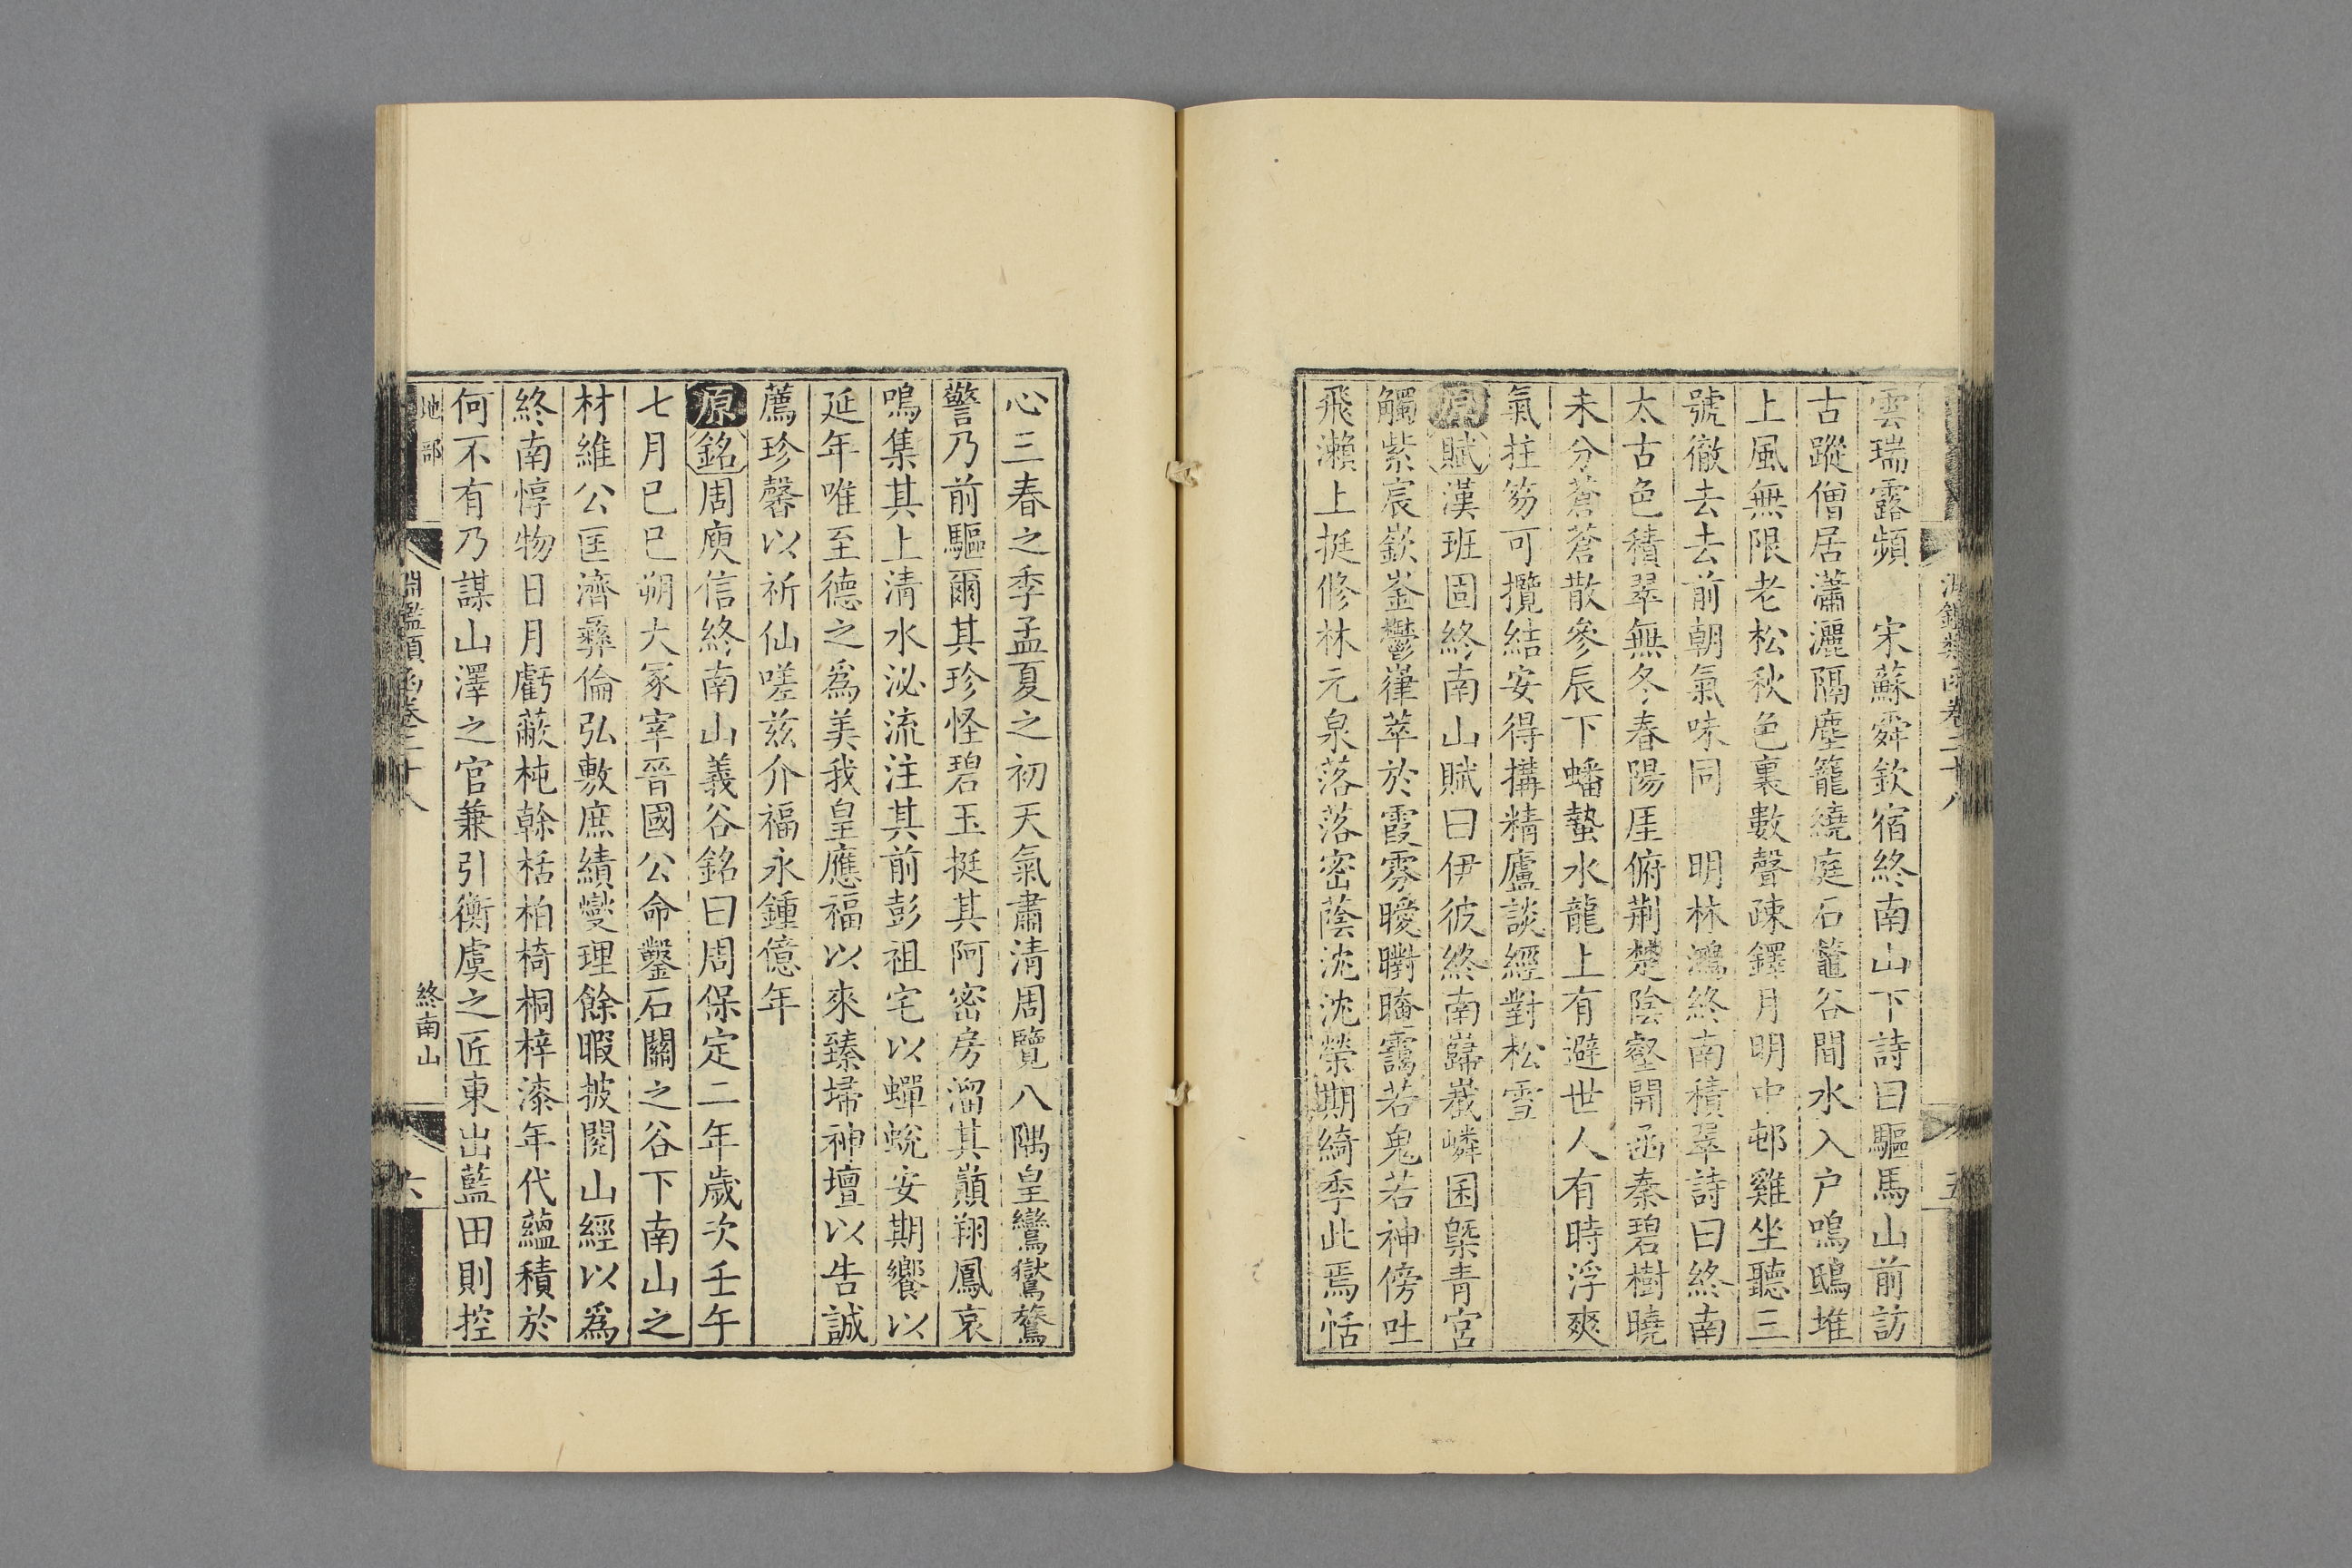 雲瑞露頻　宋蘇舜欽宿終南山下詩曰驅馬山前訪
古蹤僧居瀟灑隔塵籠繞庭石龕谷間水入户鳴鴟堆
上風無限老松秋色裏數聲疎鐸月明中邨雞坐聽三
號徹去去前朝氣味同　明林鴻終南積翠詩曰終南
太古色積翠無冬春陽厓俯荆楚陰壑開函秦碧樹曉
未分蒼蒼散參辰下蟠蟄水龍上有避世人有時浮爽
氣拄笏可攬結安得搆精廬談經對松雪
原賦漢班固終南山賦曰伊彼終南巋嶻嶙囷槩青宮
觸紫宸嶔崟鬱嵂萃於霞雰曖㬣晻靄若鬼若神傍吐
飛瀨上挺修林元泉落落密蔭沈沈榮期綺季此焉恬
心三春之季孟夏之初天氣肅清周覽八隅皇鸞鷟鷟
警乃前驅爾其珍怪碧玉挺其阿密房溜其巔翔鳳哀
鳴集其上清水泌流注其前彭祖宅以蟬蛻安期饗以
延年唯至德之爲美我皇應福以來臻埽神壇以告誠
薦珍馨以祈仙嗟兹介福永鍾億年
原銘周庾信終南山義谷銘曰周保定二年歲次壬午
七月已巳朔大冢宰晉國公命鑿石關之谷下南山之
材維公匡濟彝倫弘敷庶績燮理餘暇披閱山經以爲
終南惇物日月虧蔽杶榦栝柏椅桐梓漆年代蘊積於
何不有乃謀山澤之官兼引衡虞之匠東出藍田則控
地部
淵鑑類函卷二十八
終南山
六